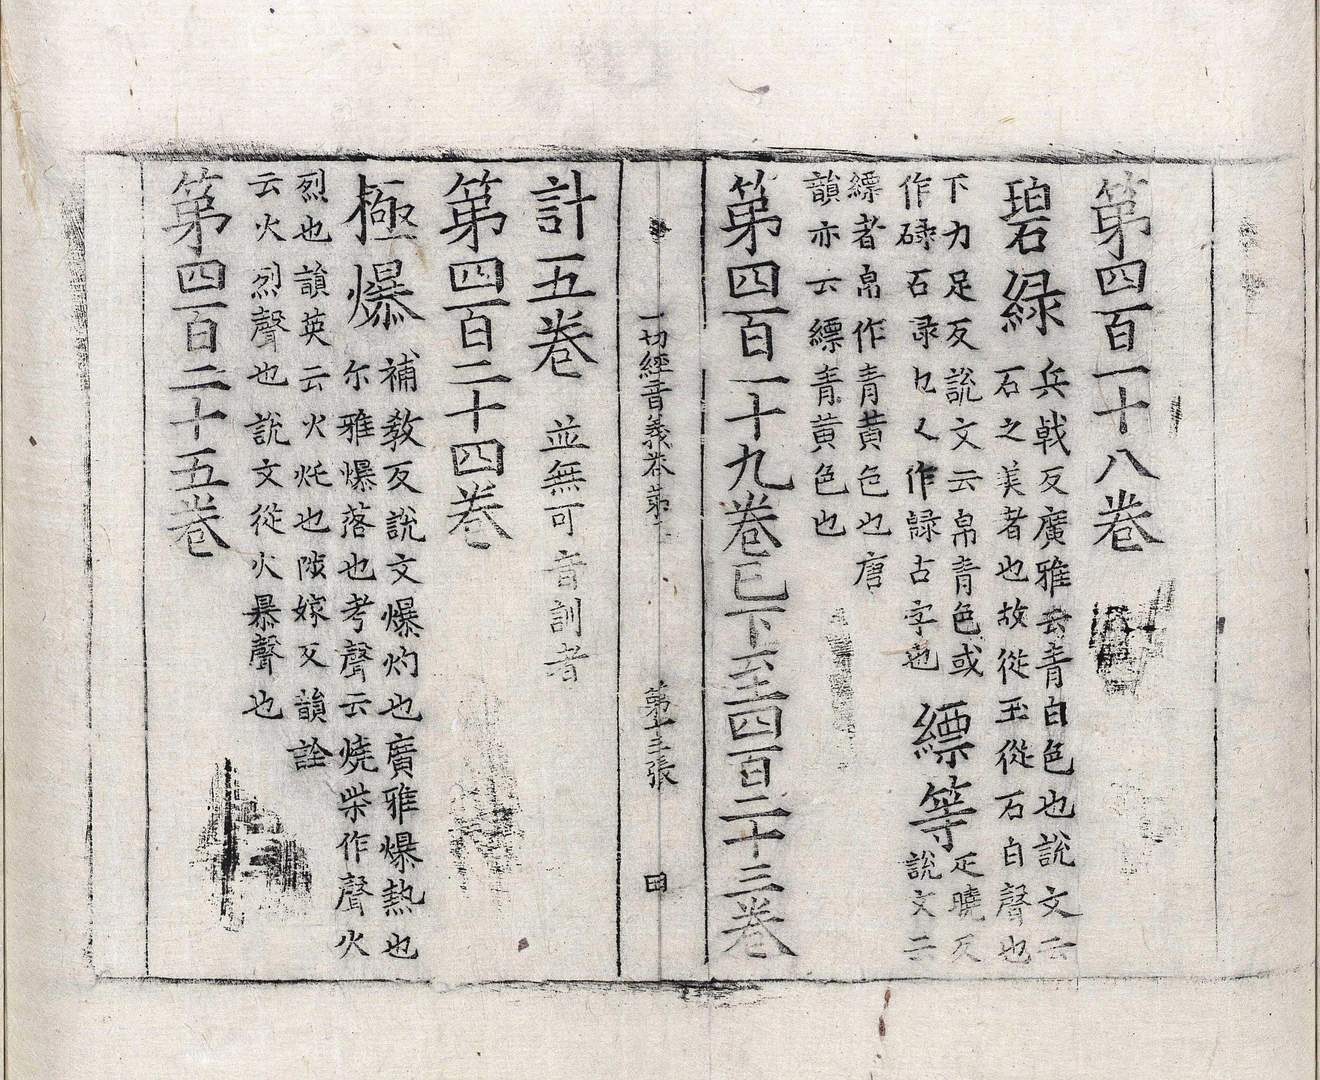 第四百一十八卷
碧緑
兵戟反廣雅云青白色也說文云
石之美者也故從玉從石白聲也
下力足反說文云帛青色或
作碌石录也作録古字也
縹等
疋曉反
說文云
縹者帛作青黄色也唐
韻亦云縹青黄色也
第四百一十九卷已下至四百二十三卷
一切經音義卷第
第十三張
田
計五卷
並無可音訓者
第四百二十四卷
極爆
補教反說文爆灼也廣雅爆熱也
尔雅爆落也考聲云燒柴作聲火
烈也韻英云火烢也陟嫁反韻詮
云火烈聲也說文從火暴聲也
第四百二十五卷